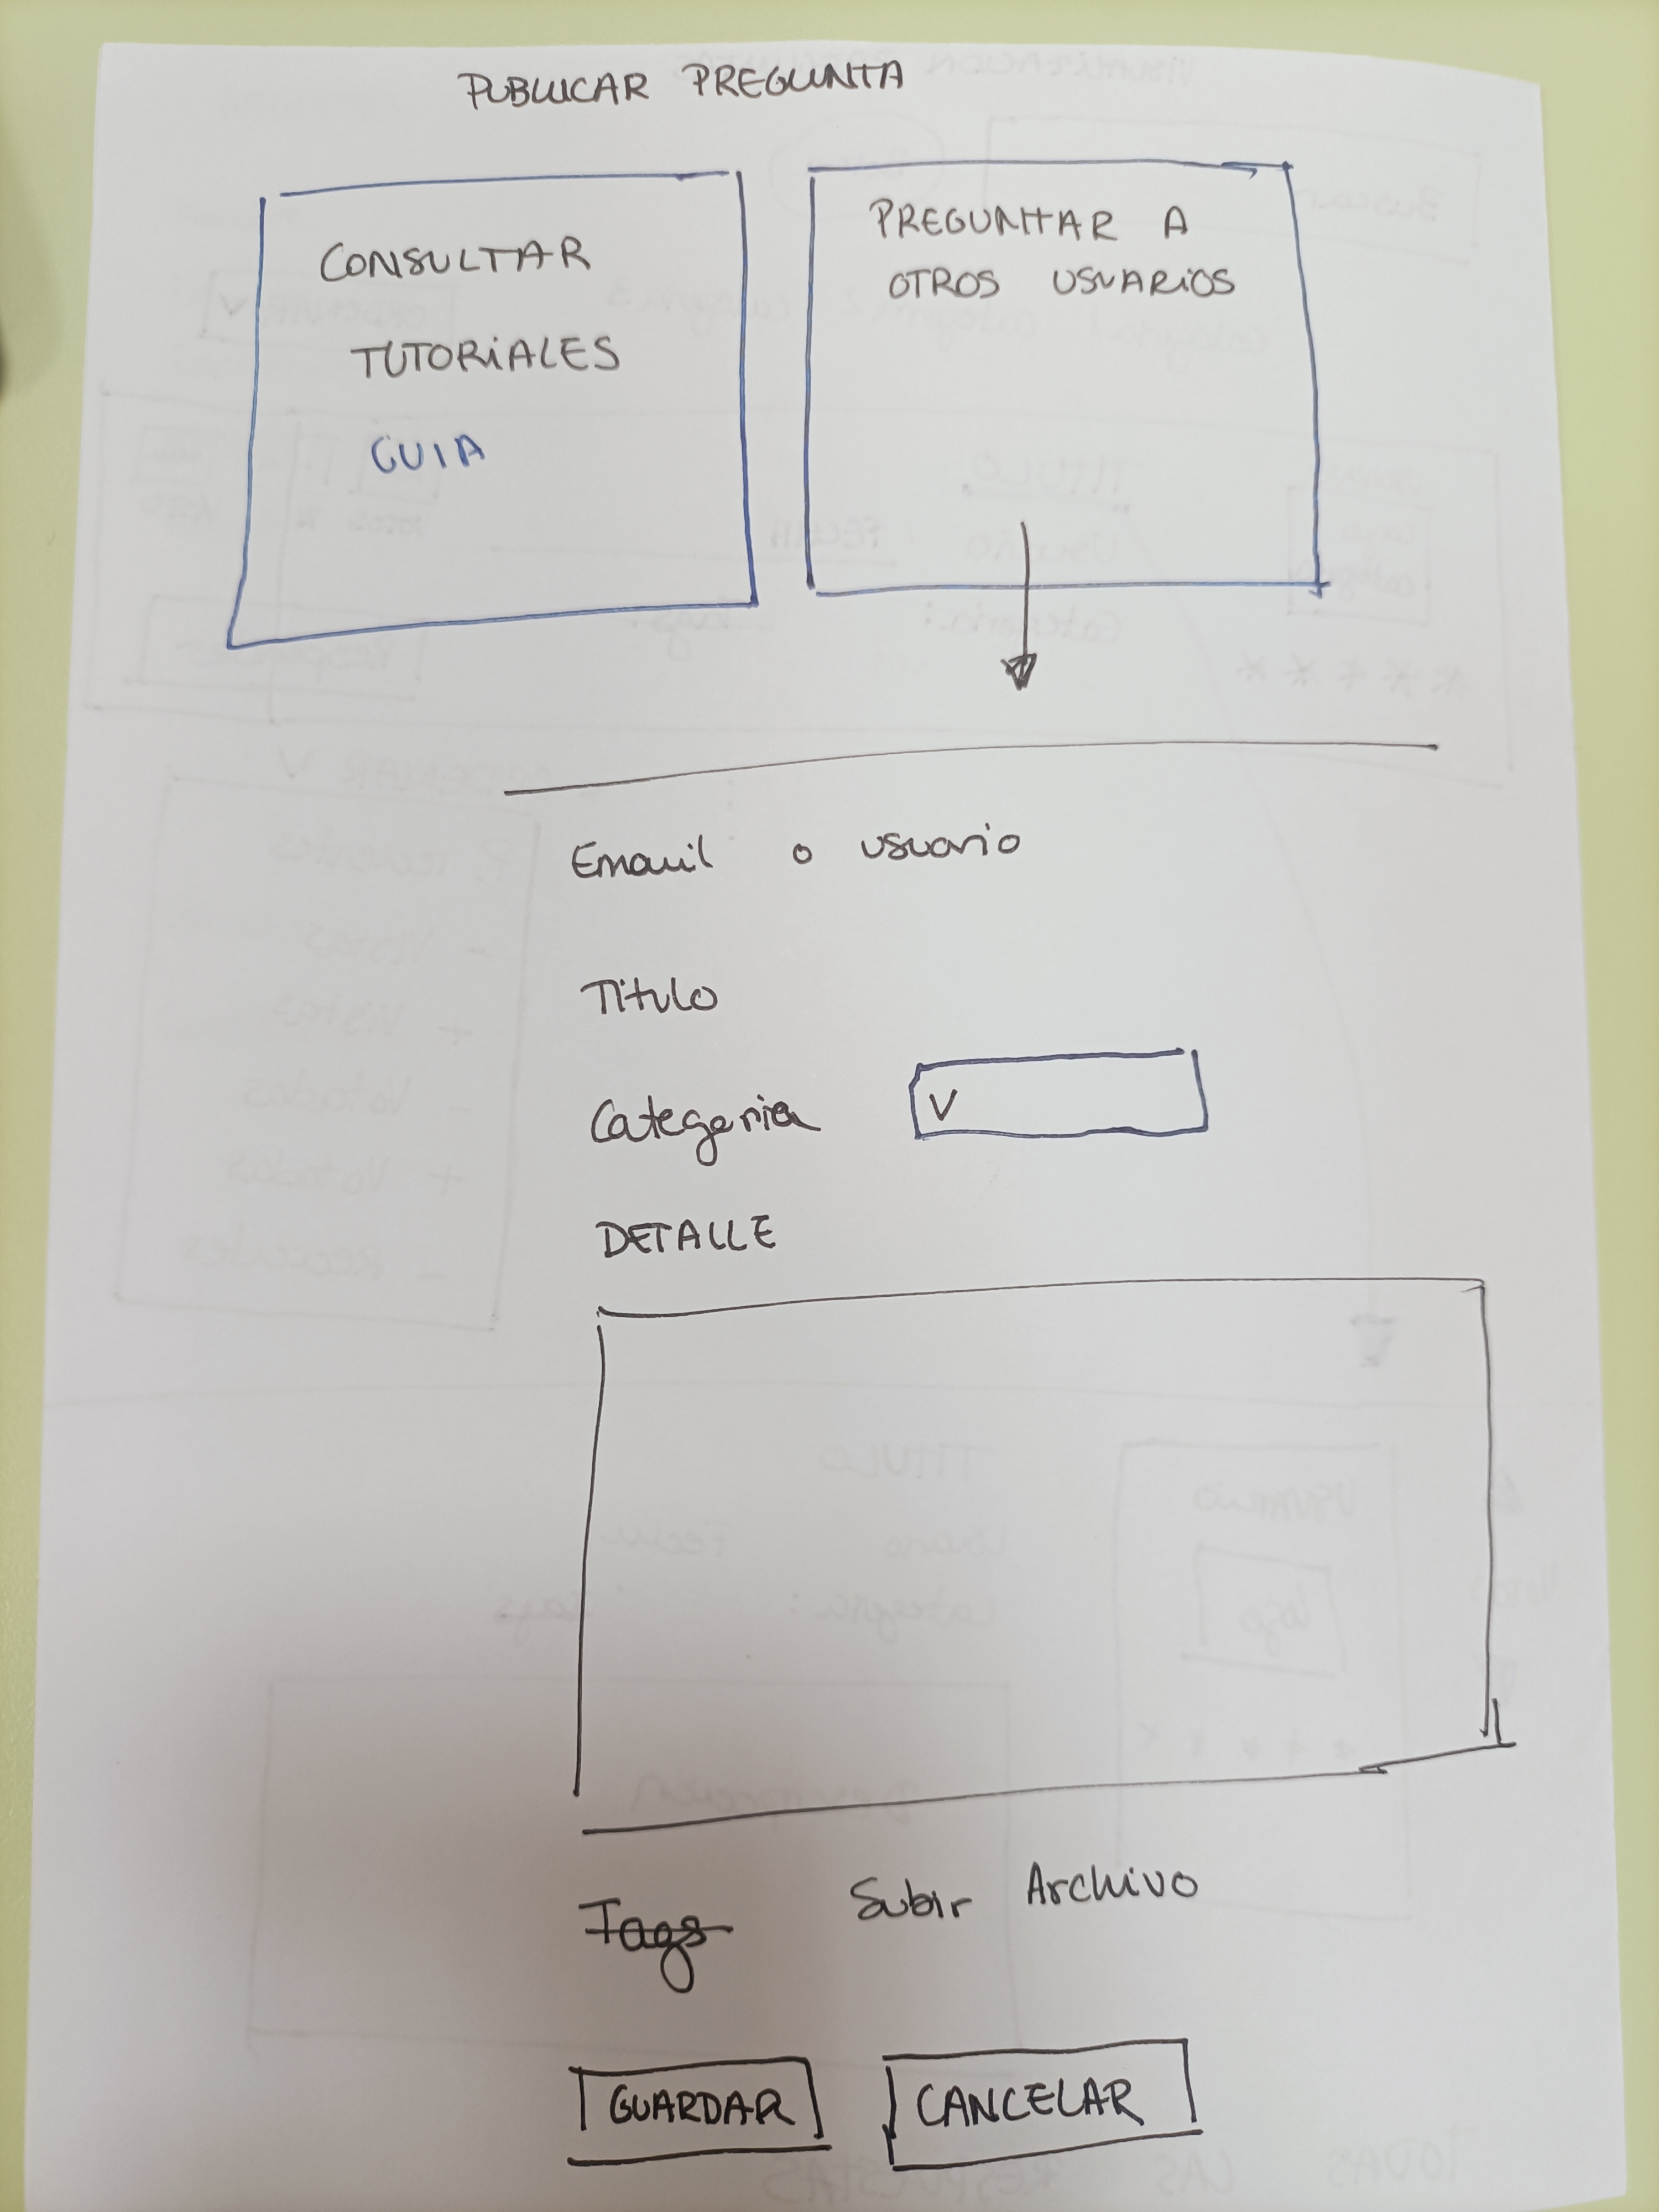 PUBLICAR PREGUNTA
CONSULTAR
TUTORIALES
GUIA
PREGUNTAR A
OTROS USUARIOS
Email o usuario
Titulo
Categoria
V
DETALLE
Tags
Subir Archivo
GUARDAR
CANCELAR